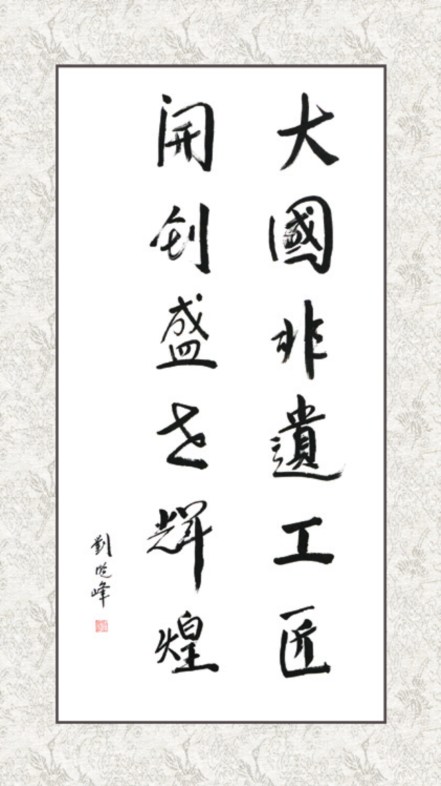 大國非遺工匠
開創盛世輝煌
劉曉峰